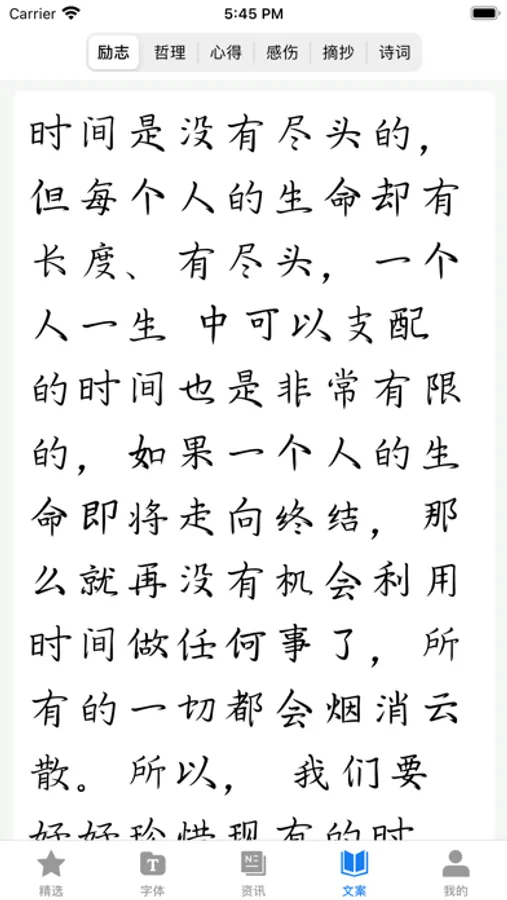 Carrier 5:45 PM
励志 哲理 心得 感伤 摘抄 诗词
时间是没有尽头的，
但每个人的生命却有
长度、有尽头，一个
人一生 中可以支配
的时间也是非常有限
的，如果一个人的生
命即将走向终结，那
么就再没有机会利用
时间做任何事了，所
有的一切都会烟消云
散。所以， 我们要
好好珍惜现有的时
精选 字体 资讯 文案 我的